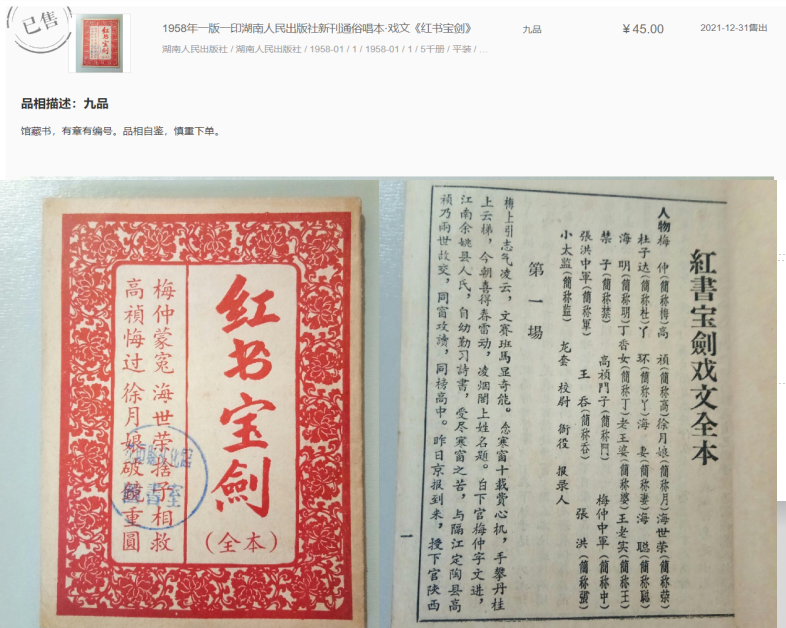 已售
1958年一版一印湖南人民出版社新刊通俗唱本·戏文《红书宝剑》
九品
￥45.00
2021-12-31售出
湖南人民出版社 / 湖南人民出版社 / 1958-01 / 1 / 1958-01 / 1 / 5千册 / 平装 / ...
品相描述：九品
馆藏书，有章有编号。品相自鉴，慎重下单。
红书宝劍
(全本)
梅仲蒙冤 海世荣捨子相救
高禎悔过 徐月娘破鏡重圓
書室
紅書宝劍戏文全本
人物 梅　仲(簡称梅)高　禎(簡称高)徐月娘(簡称月)海世荣(簡称荣)
杜子达(簡称杜)丫　环(簡称丫)海　妻(簡称妻)海　聪(簡称聪)
海　明(簡称明)丁香女(簡称丁)老王婆(簡称婆)王老实(簡称王)
禁　子(簡称禁)　高禎門子(簡称門)　梅仲中軍(簡称中)
張洪中軍(簡称軍)　王　吞(簡称吞)　張　洪(簡称張)
小太監(簡称監)　龙套　校尉　衙役　报录人
第一場
梅上引志气凌云，文赛班馬显奇能。念寒窗十載费心机，手攀丹桂
上云梯，今朝喜得春雷动，凌烟閣上姓名題。白下官梅仲字文进，
江南余姚县人氏，自幼勤习詩書，受尽寒窗之苦，与隔江定陶县高
禎乃兩世故交，同窗攻讀，同榜高中。昨日京报到来，授下官陕西
一